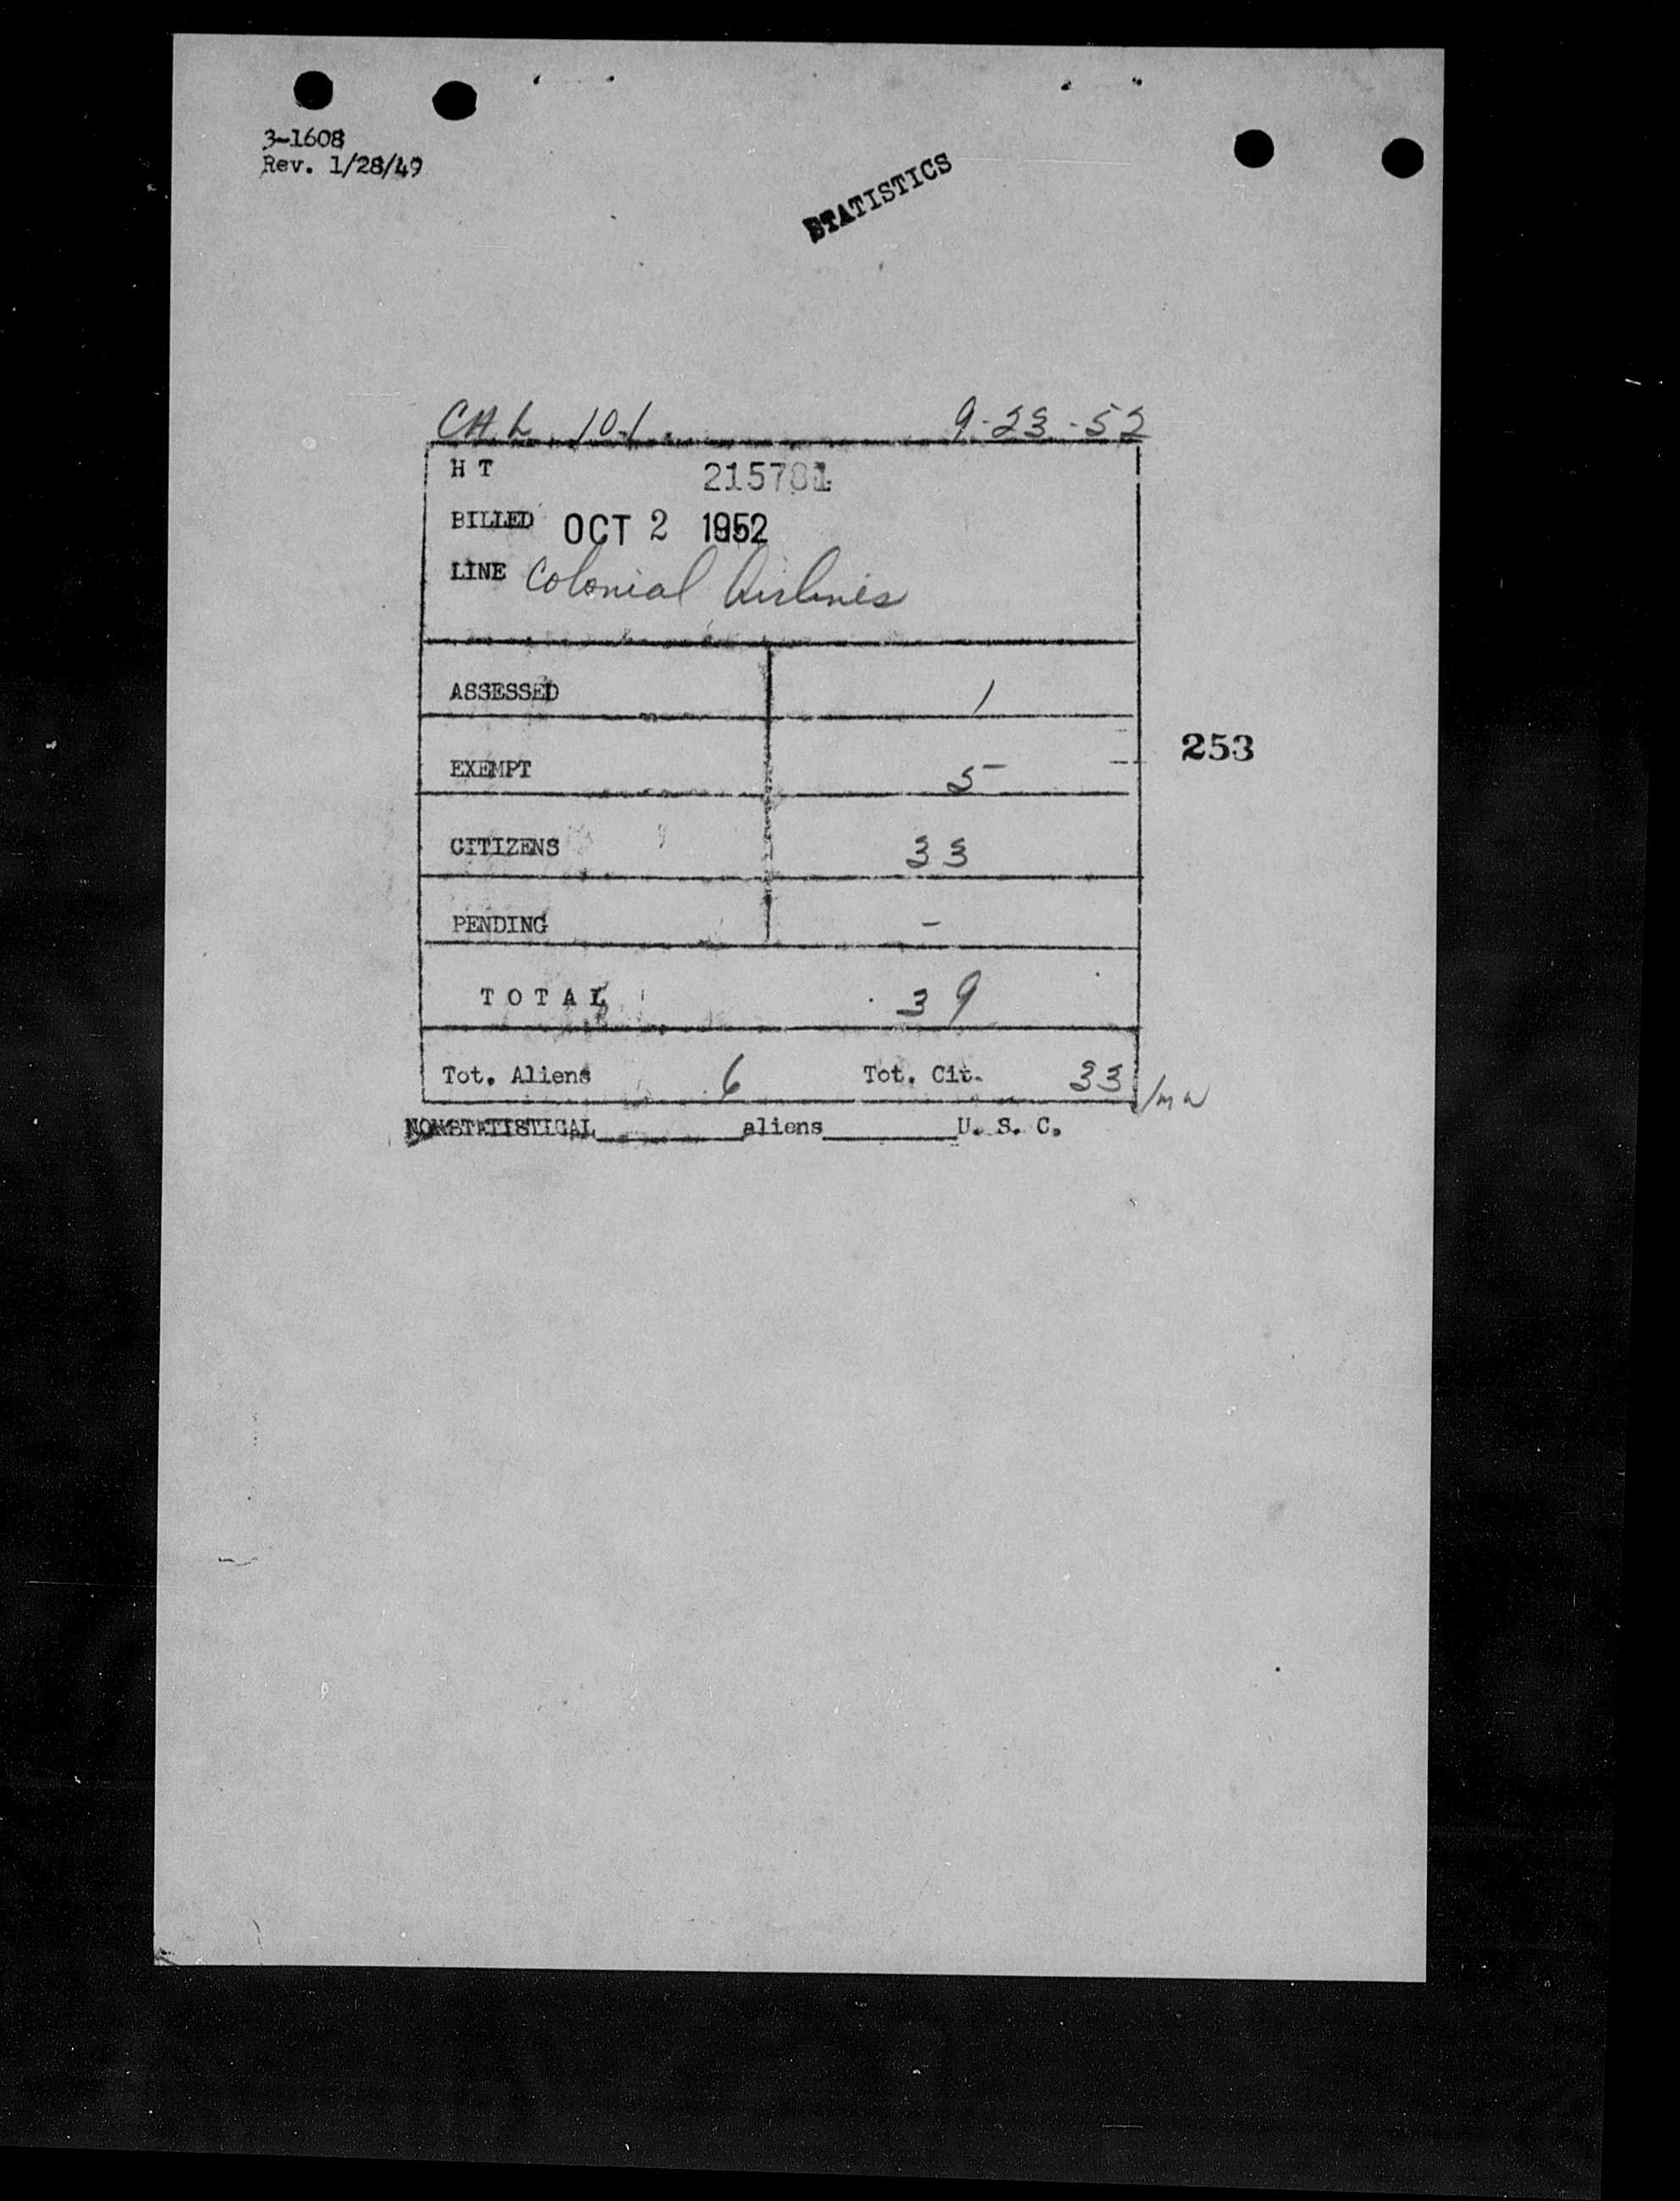 3-1608
Rev. 1/28/49
STATISTICS
CAL 101 9-23-52
H T 215781
BILLED OCT 2 1952
LINE Colonial Airlines
ASSESSED 1
253
EXEMPT 5
CITIZENS 33
PENDING -
T O T A L 39
Tot. Aliens 6 Tot. Cit. 33
NONSTATISTICAL________aliens________U. S. C.